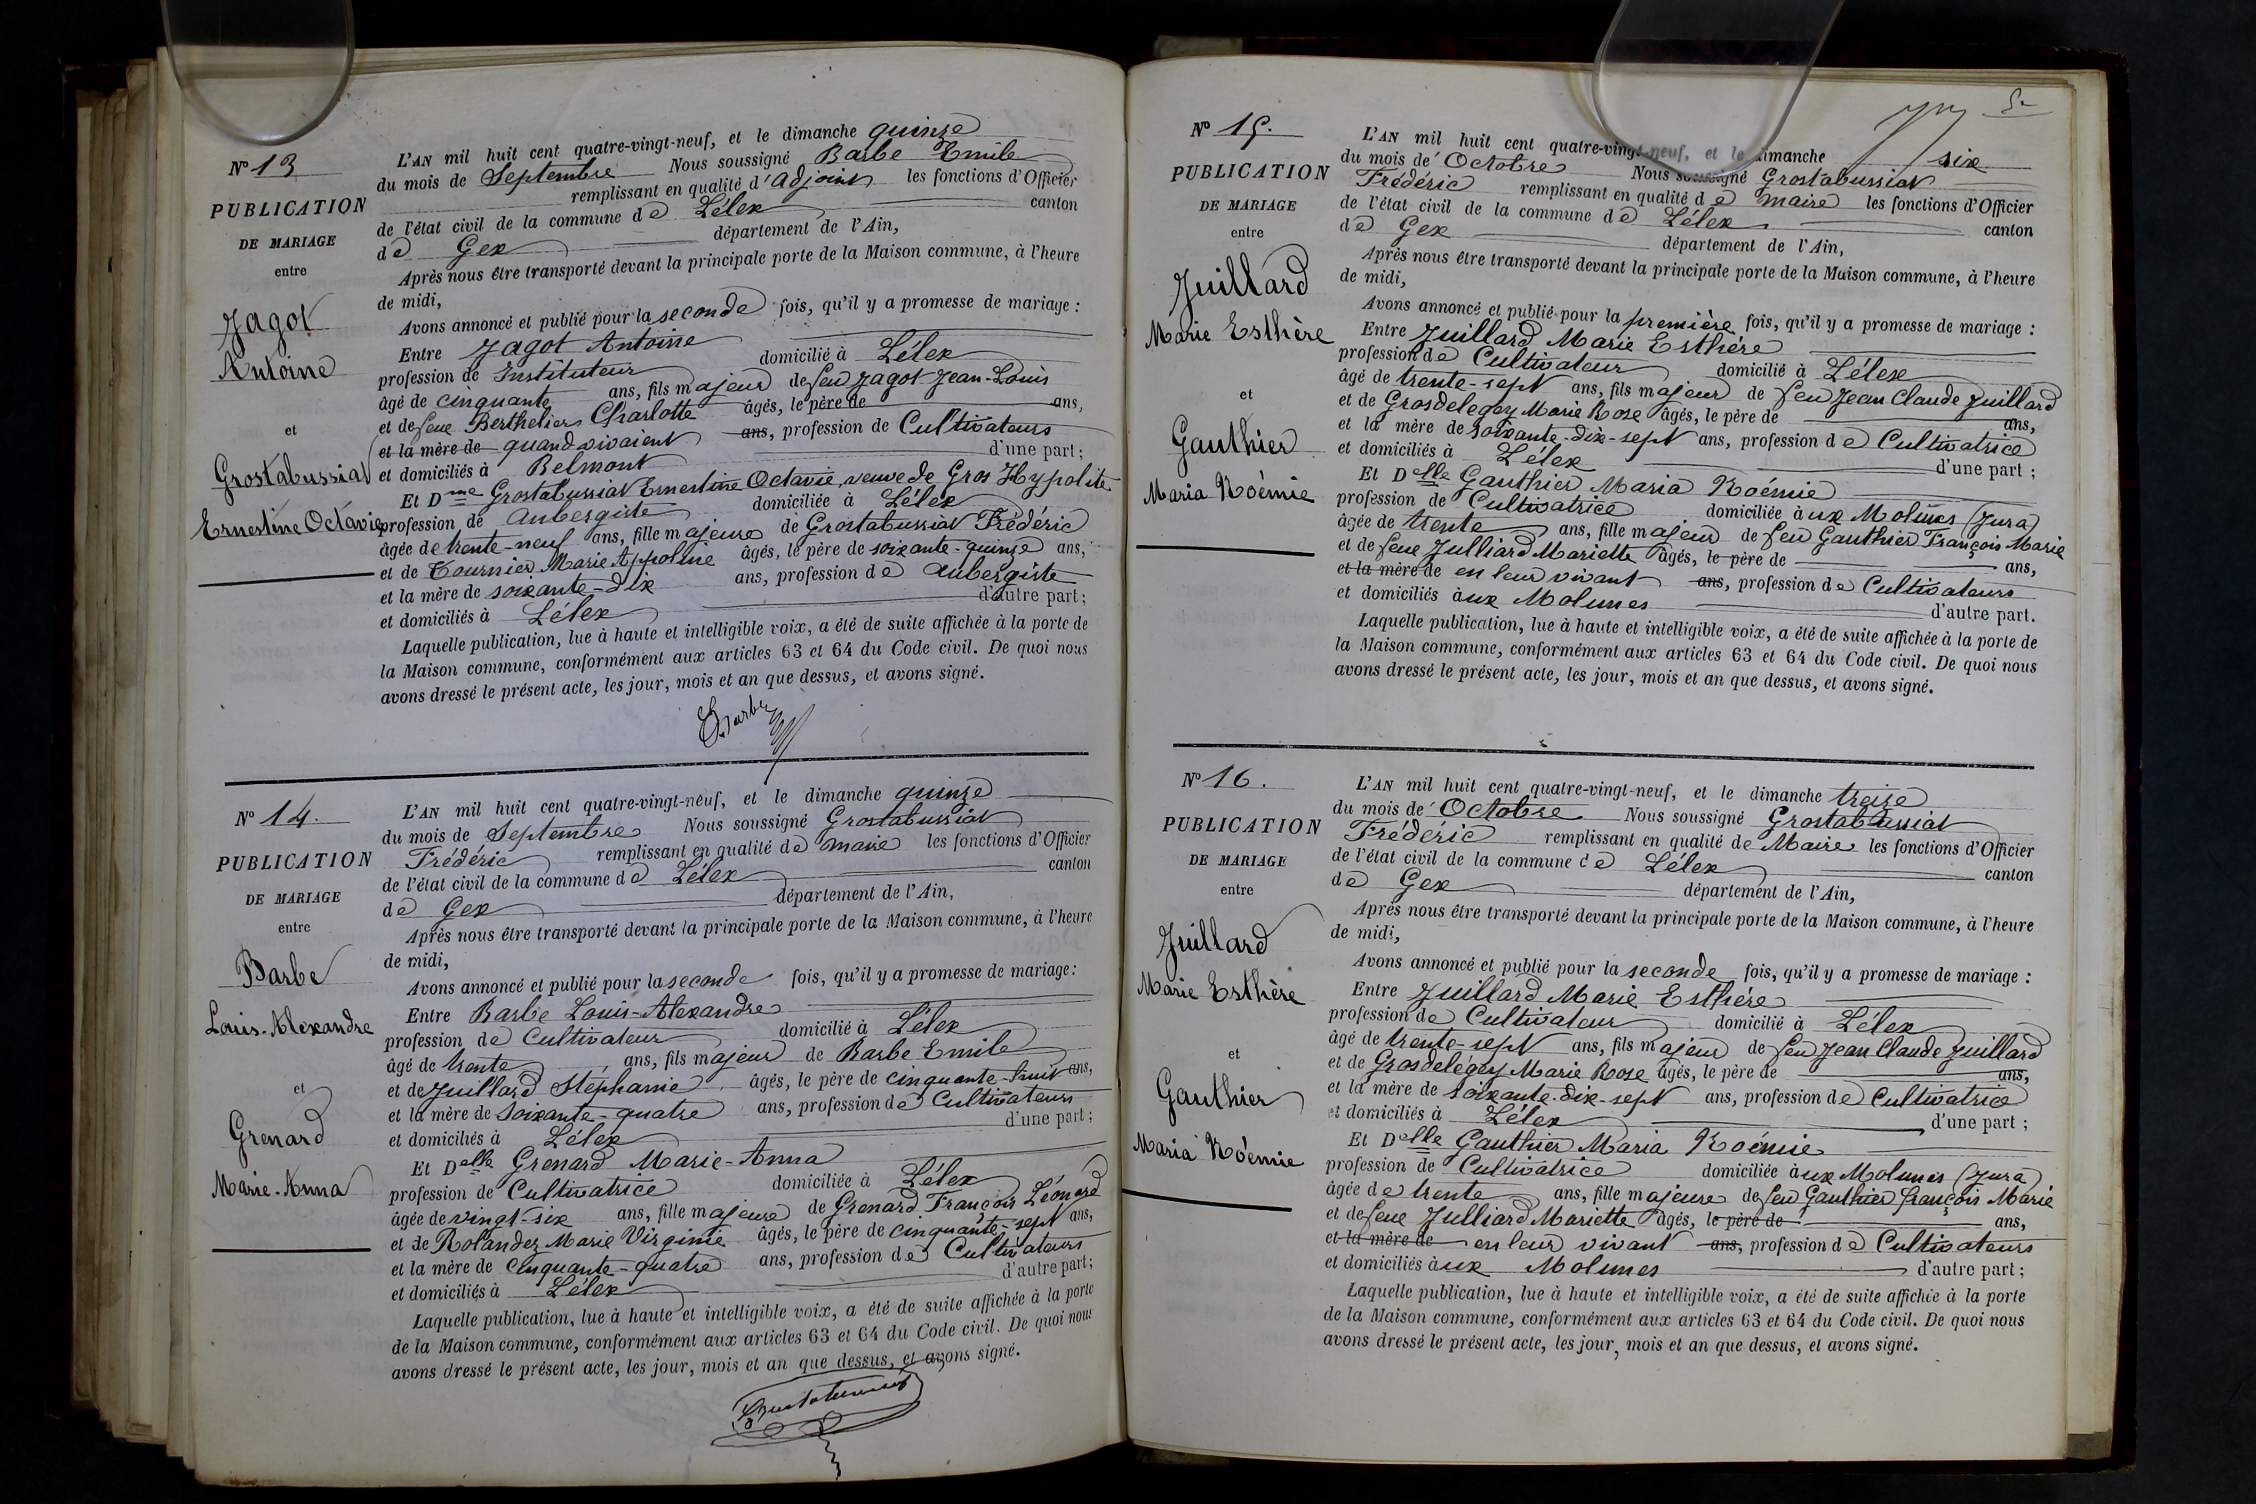 N° 13
PUBLICATION
DE MARIAGE
entre
Jagot
Antoine
et
Grostabussiat
Ernestine Octavie
L'AN mil huit cent quatre-vingt-neuf, et le dimanche quinze
du mois de Septembre Nous soussigné Barbe Emile
remplissant en qualité d'adjoint les fonctions d'Officier
de l'état civil de la commune de Lélex canton
de Gex département de l'Ain,
Après nous être transporté devant la principale porte de la Maison commune, à l'heure
de midi,
Avons annoncé et publié pour la seconde fois, qu'il y a promesse de mariage :
Entre Jagot Antoine
profession de Instituteur domicilié à Lélex
âgé de cinquante ans, fils majeur de feu Jagot Jean-Louis
et de feue Berthelier Charlotte âgés, le père de ans,
et la mère de quand vivaient ans, profession de Cultivateurs
et domiciliés à Belmont d'une part ;
Et Dme Grostabussiat Ernestine Octavie, veuve de Gros Hypolite
profession de Aubergiste domiciliée à Lélex
âgée de trente-neuf ans, fille majeure de Grostabussiat Frédéric
et de Tournier Marie Appoline âgés, le père de soixante-quinze ans,
et la mère de soixante-dix ans, profession de Aubergiste
et domiciliés à Lélex d'autre part ;
Laquelle publication, lue à haute et intelligible voix, a été de suite affichée à la porte de
la Maison commune, conformément aux articles 63 et 64 du Code civil. De quoi nous
avons dressé le présent acte, les jour, mois et an que dessus, et avons signé.
E. Barbe
N° 14.
PUBLICATION
DE MARIAGE
entre
Barbe
Louis-Alexandre
et
Grenard
Marie-Anna
L'AN mil huit cent quatre-vingt-neuf, et le dimanche quinze
du mois de Septembre Nous soussigné Grostabussiat
Frédéric remplissant en qualité de maire les fonctions d'Officier
de l'état civil de la commune de Lélex canton
de Gex département de l'Ain,
Après nous être transporté devant la principale porte de la Maison commune, à l'heure
de midi,
Avons annoncé et publié pour la seconde fois, qu'il y a promesse de mariage :
Entre Barbe Louis-Alexandre
profession de Cultivateur domicilié à Lélex
âgé de trente ans, fils majeur de Barbe Emile
et de Juillard Stéphanie âgés, le père de cinquante-huit ans,
et la mère de soixante-quatre ans, profession de Cultivateurs
et domiciliés à Lélex d'une part ;
Et Delle Grenard Marie-Anna
profession de Cultivatrice domiciliée à Lélex
âgée de vingt-six ans, fille majeure de Grenard François Léonard
et de Rolandez Marie Virginie âgés, le père de cinquante-sept ans,
et la mère de cinquante-quatre ans, profession de Cultivateurs
et domiciliés à Lélex d'autre part ;
Laquelle publication, lue à haute et intelligible voix, a été de suite affichée à la porte
de la Maison commune, conformément aux articles 63 et 64 du Code civil. De quoi nous
avons dressé le présent acte, les jour, mois et an que dessus, et avons signé.
Grostabussiat
N° 15.
PUBLICATION
DE MARIAGE
entre
Juillard
Marie Esthère
et
Gauthier
Maria Noémie
L'AN mil huit cent quatre-vingt-neuf, et le dimanche six
du mois de Octobre Nous soussigné Grostabussiat
Frédéric remplissant en qualité de maire les fonctions d'Officier
de l'état civil de la commune de Lélex canton
de Gex département de l'Ain,
Après nous être transporté devant la principale porte de la Maison commune, à l'heure
de midi,
Avons annoncé et publié pour la première fois, qu'il y a promesse de mariage :
Entre Juillard Marie Esthère
profession de Cultivateur domicilié à Lélex
âgé de trente-sept ans, fils majeur de feu Jean Claude Juillard
et de Grosdelegey Marie Rose âgés, le père de ans,
et la mère de soixante-dix-sept ans, profession de Cultivatrice
et domiciliés à Lélex d'une part ;
Et Delle Gauthier Maria Noémie
profession de Cultivatrice domiciliée aux Molunes (Jura)
âgée de trente ans, fille majeur de feu Gauthier François Marie
et de feue Julliard Mariette âgés, le père de ans,
et la mère de en leur vivant ans, profession de Cultivateurs
et domiciliés aux Molunes d'autre part.
Laquelle publication, lue à haute et intelligible voix, a été de suite affichée à la porte de
la Maison commune, conformément aux articles 63 et 64 du Code civil. De quoi nous
avons dressé le présent acte, les jour, mois et an que dessus, et avons signé.
N° 16.
PUBLICATION
DE MARIAGE
entre
Juillard
Marie Esthère
et
Gauthier
Maria Noémie
L'AN mil huit cent quatre-vingt-neuf, et le dimanche treize
du mois de Octobre Nous soussigné Grostabussiat
Frédéric remplissant en qualité de Maire les fonctions d'Officier
de l'état civil de la commune de Lélex canton
de Gex département de l'Ain,
Après nous être transporté devant la principale porte de la Maison commune, à l'heure
de midi,
Avons annoncé et publié pour la seconde fois, qu'il y a promesse de mariage :
Entre Juillard Marie Esthère
profession de Cultivateur domicilié à Lélex
âgé de trente-sept ans, fils majeur de feu Jean Claude Juillard
et de Grosdelégey Marie Rose âgés, le père de ans,
et la mère de soixante-dix-sept ans, profession de Cultivatrice
et domiciliés à Lélex d'une part ;
Et Delle Gauthier Maria Noémie
profession de Cultivatrice domiciliée aux Molunes (Jura)
âgée de trente ans, fille majeure de feu Gauthier françois Marie
et de feue Julliard Mariette âgés, le père de ans,
et la mère de en leur vivant ans, profession de Cultivateurs
et domiciliés aux Molunes d'autre part ;
Laquelle publication, lue à haute et intelligible voix, a été de suite affichée à la porte
de la Maison commune, conformément aux articles 63 et 64 du Code civil. De quoi nous
avons dressé le présent acte, les jour, mois et an que dessus, et avons signé.